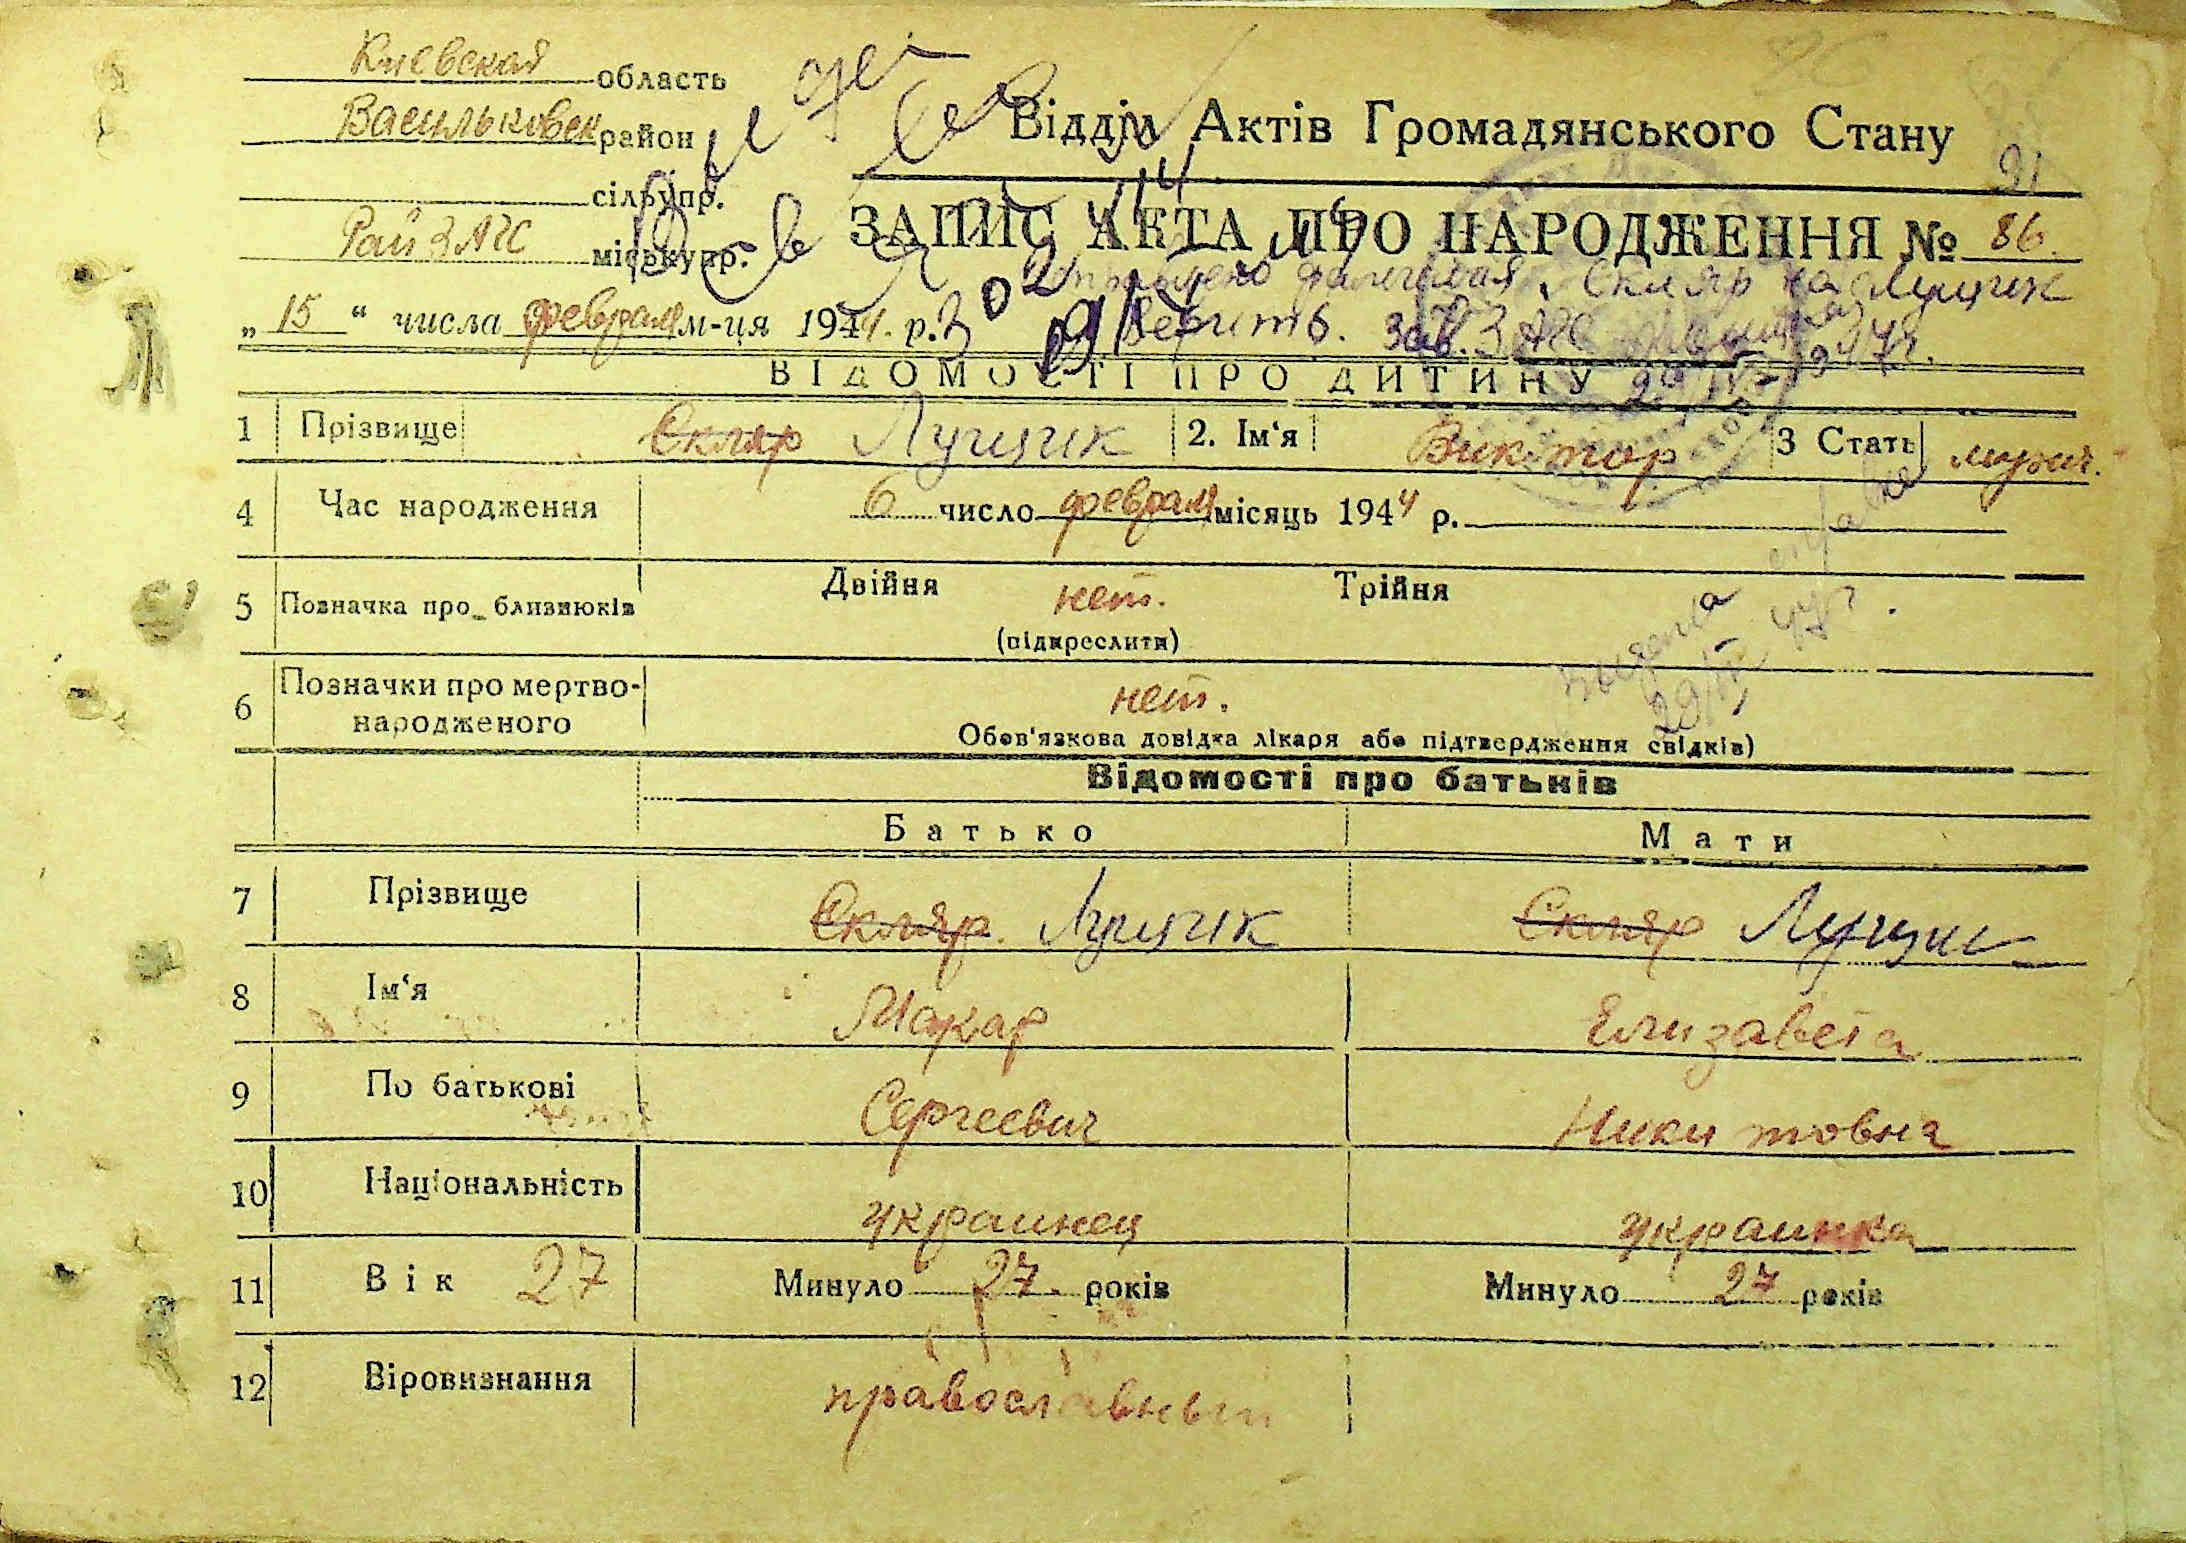 Киевская область
Васильковск район
Відділ Актів Громадянського Стану
сільупр.
91
Рай ЗАГС міськупр.
ЗАПИС АКТА ПРО НАРОДЖЕННЯ № 86.
фамилия Скляр на Лущик
„ 15 “ числа февраля м-ця 1944. р.
Верить. Зав. ЗАГС
ВІДОМОСТІ ПРО ДИТИНУ
1 Прізвище Скляр Лущик 2. Ім‘я Виктор 3 Стать мужч.
4 Час народження 6 число февраля місяць 1944 р.
5 Позначка про близнюків Двійня нет. Трійня
(підкреслити)
6 Позначки про мертво-
народженого нет.
Обов'язкова довідка лікаря або підтвердження свідків)
Відомості про батьків
Батько Мати
7 Прізвище Скляр. Лущик Скляр Лущик
8 Ім‘я Макар Елизавета
9 По батькові Сергеевич Никитовна
10 Національність украинец украинка
11 Вік 27 Минуло 27. років Минуло 27 років
12 Віровизнання православный